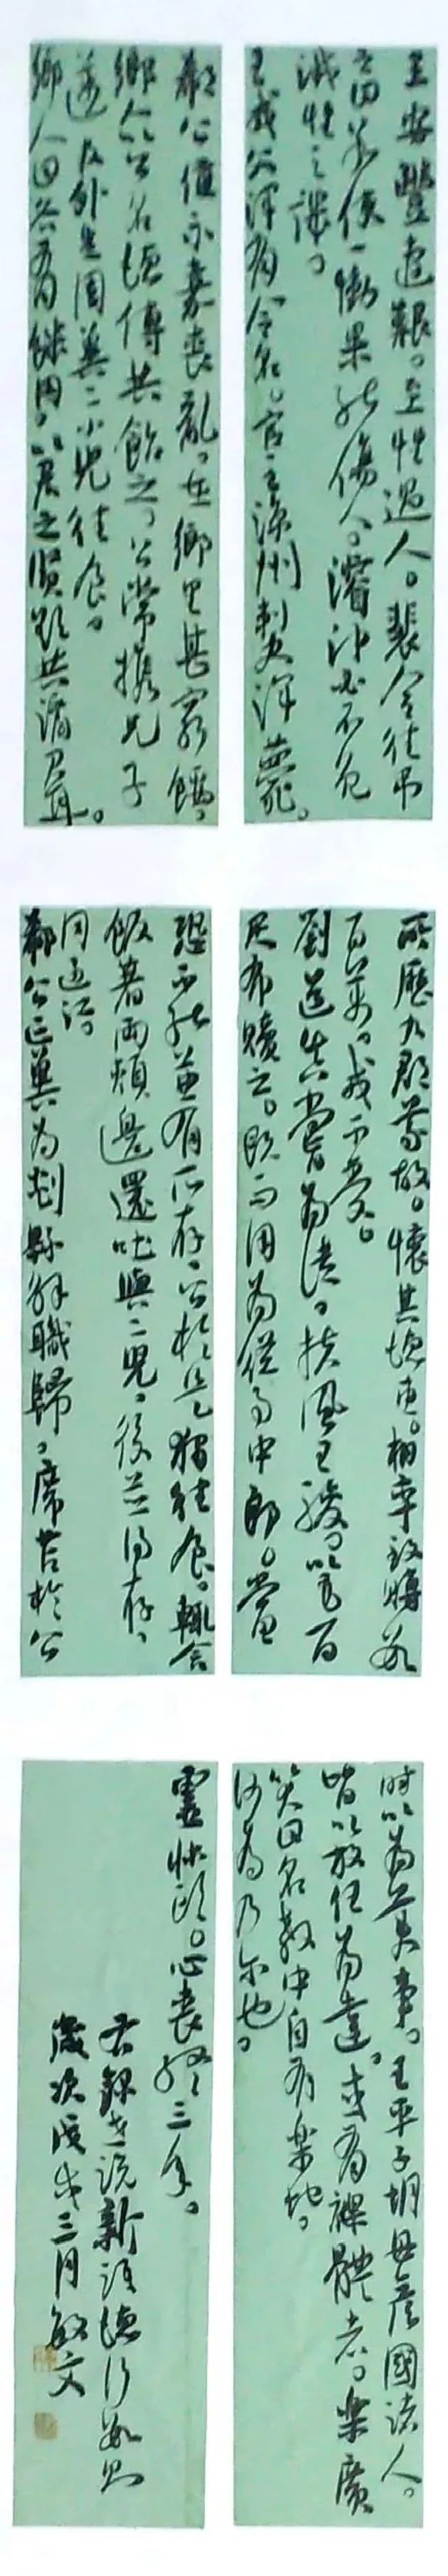 王安豐遭艱。至性過人。裴令往弔
之曰若使一慟果能傷人。濬沖必不免
滅性之譏。
王戎父渾有令名。官至涼州刺史渾薨。
所歷九郡義故。懷其德惠。相率致賻數
百萬。戎不受。
劉道真嘗為徒。扶風王駿。以五百
疋布贖之。既而用為從事中郎。當
時以為美事。王平子胡毋彥國諸人。
皆以放任為達。或有裸體者。樂廣
笑曰名教中自有樂地。
何為乃爾也。
郗公值永嘉喪亂。在鄉里甚窮餒。
鄉人以公名德傳共飴之。公常攜兄子
邁及外生周翼二小兒往食。
鄉人曰各自饑困。以君之賢欲共濟君耳。
恐不能兼有所存。公於是獨往食。輒含
飯著兩頰邊還吐與二兒。後並得存。
同過江。
郗公亡翼為剡縣解職歸。席苫於公
靈床頭。心喪終三年。
右錄世說新語德行數則
歲次戊戌三月敏文